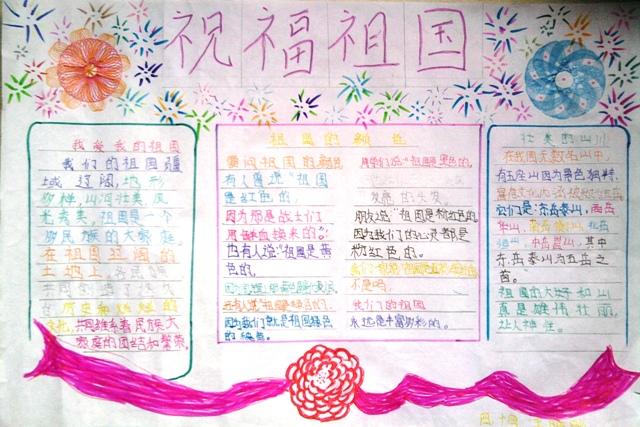 祝福祖国
我爱我的祖国
我们的祖国疆
域辽阔,地形
多样,山河壮美,风
光秀美,祖国是一个
多民族的大家庭。
在祖国辽阔的
土地上,各民族
共同创造了悠久
的历史和灿烂的
文化,共同维系着民族大
家庭的团结和繁荣。
祖国的颜色
要问祖国的颜色
有人会说:“祖国
是红色的,
因为那是战士们
用鲜血换来的。”
也有人说:“祖国是黄
色的,
还有人说:“祖国是绿色的,
因为我们就是祖国绿色
的
同学们说:“祖国是黑色的,
发亮的头发。
朋友说:“祖国是粉红色的。
因为我们的心灵都是
粉红色的。
不是吗,
我们的祖国
永远是丰富多彩的。
壮美的山川
在我国无数名山中
有五座山因为景色独特,
它们是:东岳泰山,西岳
华山,南岳衡山,北岳
恒山,中岳嵩山,其中
东岳泰山为五岳之
首。
祖国的大好河山
真是雄伟壮丽,
让人神往。